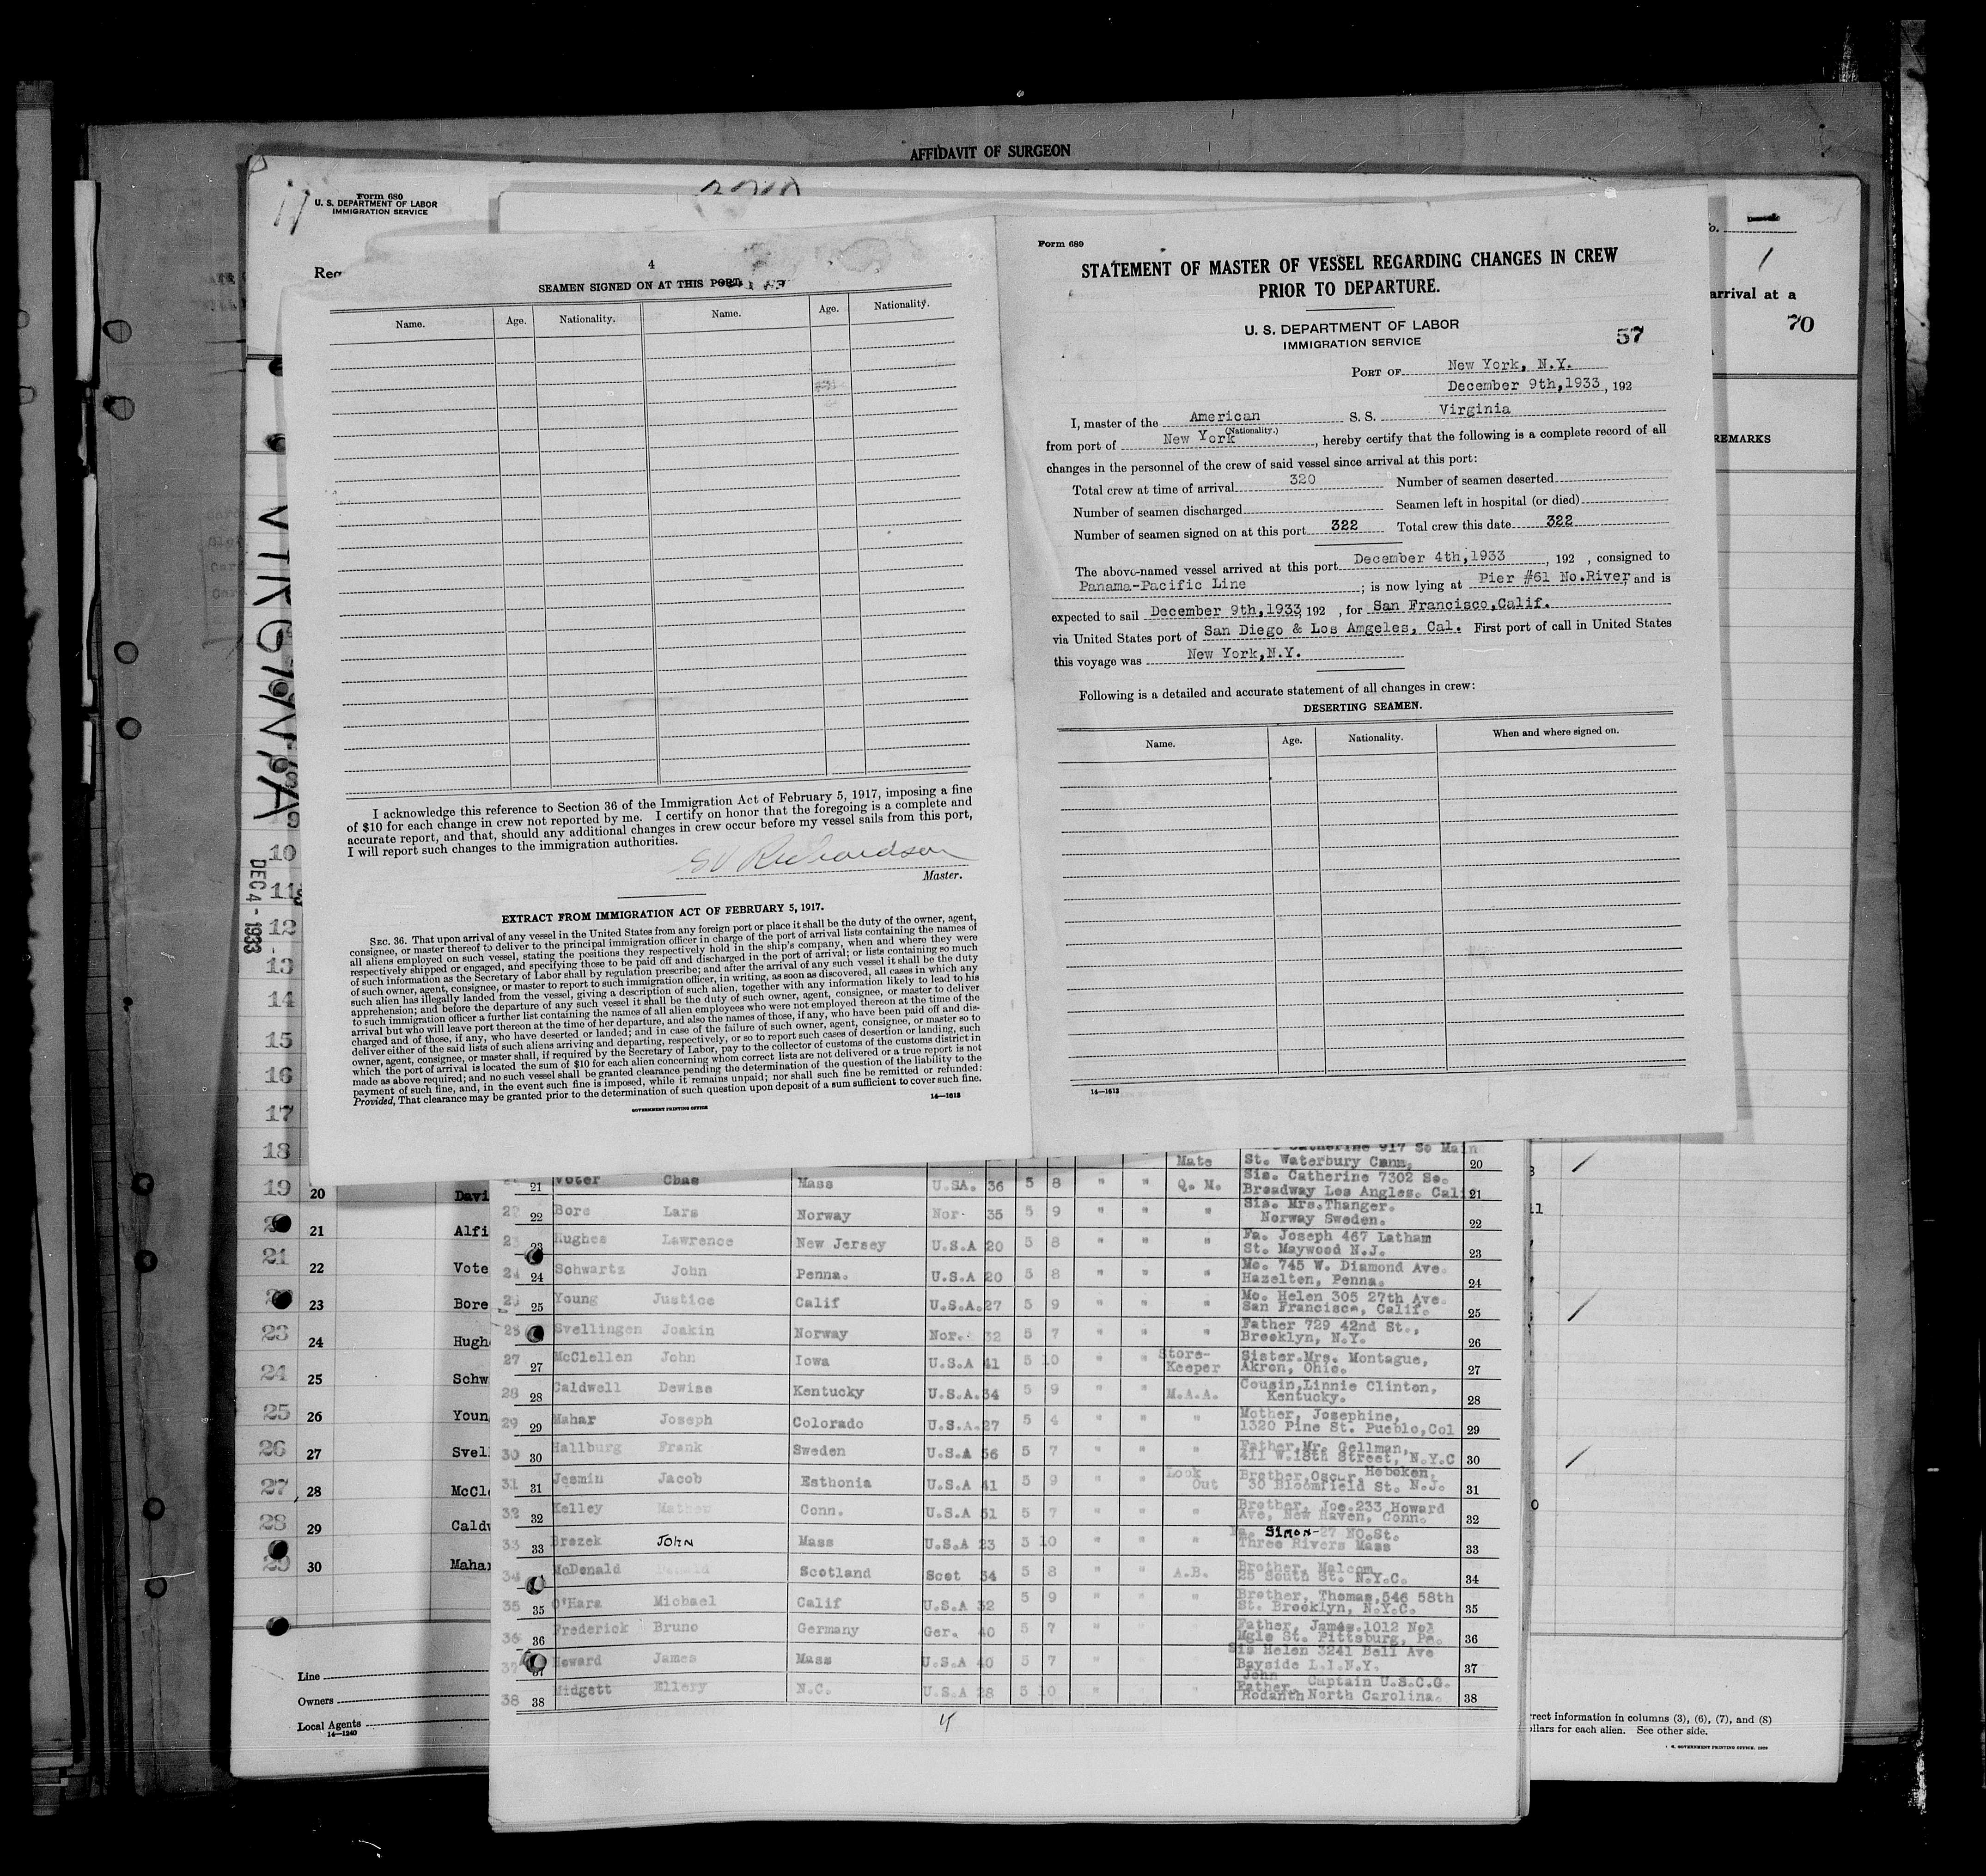 AFFIDAVIT OF SURGEON
Form 680
U. S. DEPARTMENT OF LABOR
IMMIGRATION SERVICE
4
SEAMEN SIGNED ON AT THIS PORT.
Name. Age. Nationality. Name. Age. Nationality.
I acknowledge this reference to Section 36 of the Immigration Act of February 5, 1917, imposing a fine
of $10 for each change in crew not reported by me. I certify on honor that the foregoing is a complete and
accurate report, and that, should any additional changes in crew occur before my vessel sails from this port,
I will report such changes to the immigration authorities.
Richardson
Master.
EXTRACT FROM IMMIGRATION ACT OF FEBRUARY 5, 1917.
SEC. 36. That upon arrival of any vessel in the United States from any foreign port or place it shall be the duty of the owner, agent,
consignee, or master thereof to deliver to the principal immigration officer in charge of the port of arrival lists containing the names of
all aliens employed on such vessel, stating the positions they respectively hold in the ship's company, when and where they were
respectively shipped or engaged, and specifying those to be paid off and discharged in the port of arrival; or lists containing so much
of such information as the Secretary of Labor shall by regulation prescribe; and after the arrival of any such vessel it shall be the duty
of such owner, agent, consignee, or master to report to such immigration officer, in writing, as soon as discovered, all cases in which any
such alien has illegally landed from the vessel, giving a description of such alien, together with any information likely to lead to his
apprehension; and before the departure of any such vessel it shall be the duty of such owner, agent, consignee, or master to deliver
to such immigration officer a further list containing the names of all alien employees who were not employed thereon at the time of the
arrival but who will leave port thereon at the time of her departure, and also the names of those, if any, who have been paid off and dis-
charged and of those, if any, who have deserted or landed; and in case of the failure of such owner, agent, consignee, or master so to
deliver either of the said lists of such aliens arriving and departing, respectively, or so to report such cases of desertion or landing, such
owner, agent, consignee, or master shall, if required by the Secretary of Labor, pay to the collector of customs of the customs district in
which the port of arrival is located the sum of $10 for each alien concerning whom correct lists are not delivered or a true report is not
made as above required; and no such vessel shall be granted clearance pending the determination of the question of the liability to the
payment of such fine, and, in the event such fine is imposed, while it remains unpaid; nor shall such fine be remitted or refunded:
Provided, That clearance may be granted prior to the determination of such question upon deposit of a sum sufficient to cover such fine.
GOVERNMENT PRINTING OFFICE
14—1613
Form 689
STATEMENT OF MASTER OF VESSEL REGARDING CHANGES IN CREW
PRIOR TO DEPARTURE.
U. S. DEPARTMENT OF LABOR
IMMIGRATION SERVICE
57
PORT OF New York, N.Y.
December 9th,1933, 192
I, master of the American S. S. Virginia
(Nationality.)
from port of New York, hereby certify that the following is a complete record of all
changes in the personnel of the crew of said vessel since arrival at this port:
Total crew at time of arrival 320 Number of seamen deserted
Number of seamen discharged Seamen left in hospital (or died)
Number of seamen signed on at this port 322 Total crew this date 322
The above-named vessel arrived at this port December 4th,1933, 192 , consigned to
Panama-Pacific Line ; is now lying at Pier #61 No.River, and is
expected to sail December 9th,1933 192 , for San Francisco,Calif.
via United States port of San Diego & Los Amgeles, Cal. First port of call in United States
this voyage was New York,N.Y.
Following is a detailed and accurate statement of all changes in crew:
DESERTING SEAMEN.
Name. Age. Nationality. When and where signed on.
14—1613
arrival at a
70
REMARKS
VIRGINIA
DEC 4 - 1933
9
10
11
12
13
14
15
16
17
18
19 20 Davi
21 Alfi
21 22 Vote
23 Bore
23 24 Hugh
24 25 Schw
25 26 Youn
26 27 Svel
27 28 McCl
28 29 Cald
29 30 Maha
Line
Owners
Local Agents
14—1240
Catherine 917 So Main
Mate St. Waterbury Conn. 20
21 Voter Chas Mass U.SA. 36 5 8 " " Q. M. Sis. Catherine 7302 So.
Broadway Los Angles. Cali 21
22 22 Bore Lars Norway Nor. 35 5 9 " " " Sis. Mrs.Thanger.
Norway Sweden. 22
23 23 Hughes Lawrence New Jersey U.S.A 20 5 8 " " " Fa. Joseph 467 Latham
St. Maywood N.J. 23
24 24 Schwartz John Penna. U.S.A 20 5 8 " " " Mo. 745 W. Diamond Ave.
Hazelton, Penna. 24
25 Young Justice Calif U.S.A.27 5 9 " " " Mo. Helen 305 27th Ave.
San Francisco, Calif. 25
Svellingen Joakin Norway Nor. 32 5 7 " " " Father 729 42nd St.,
Brooklyn, N.Y. 26
27 27 McClellen John Iowa U.S.A 41 5 10 " " Store-
Keeper Sister.Mrs. Montague,
Akron, Ohio. 27
28 28 Caldwell Dewise Kentucky U.S.A.34 5 9 " " M.A.A. Cousin,Linnie Clinton,
Kentucky. 28
29 29 Mahar Joseph Colorado U.S.A.27 5 4 " " " Mother, Josephine,
1320 Pine St. Pueblo,Col 29
30 30 Hallburg Frank Sweden U.S.A 56 5 7 " " " Father,Mr. Gellman,
411 W.18th Street, N.Y.C 30
31 31 Jesmin Jacob Esthonia U.S.A 41 5 9 " " Look
Out Brother,Oscar, Hoboken,
30 Bloomfield St. N.J. 31
32 32 Kelley Mathew Conn. U.S.A 51 5 7 " " " Brother, Joe.233 Howard
Ave, New Haven, Conn. 32
33 33 Brezek John Mass U.S.A 23 5 10 " " " Fa. Simon-27 NO.St.
Three Rivers Mass 33
34 McDonald Scotland Scot 34 5 8 " " A.B. Brother, Malcom
25 South St. N.Y.C. 34
35 35 O'Hara Michael Calif U.S.A 32 5 9 " " " Brother, Thomas,546 58th
St. Brooklyn, N.Y.C. 35
36 36 Frederick Bruno Germany Ger. 40 5 7 " " " Father, James.1012 No.
St. Pittsburg, Pa. 36
37 37 Howard James Mass U.S.A 40 5 7 " " " Sis Helen 3241 Bell Ave
Bayside L.I.N.Y. 37
38 38 Midgett Ellery N.C. U.S.A 28 5 10 " " " John
Father, Captain U.S.C.G.
Rodanth North Carolina. 38
rrect information in columns (3), (6), (7), and (8)
ollars for each alien. See other side.